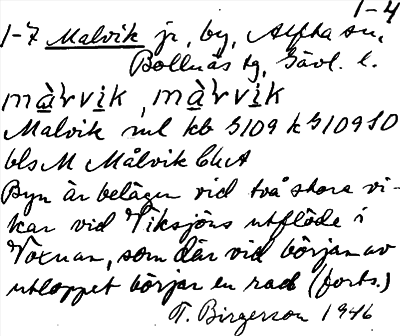 1-4
1-7 Malvik jr, by, Alfta sn,
Bollnäs tg, Gävl. l.
màrvik, màrvik
Malvik ml kb 3109 k 3109 SO
bls M Målvik
Byn är belägen vid två stora vi-
kar vid Viksjöns utflöde i
Voxnan, som där vid början av
utloppet börjar en rad (forts.)
T. Birgerson 1946